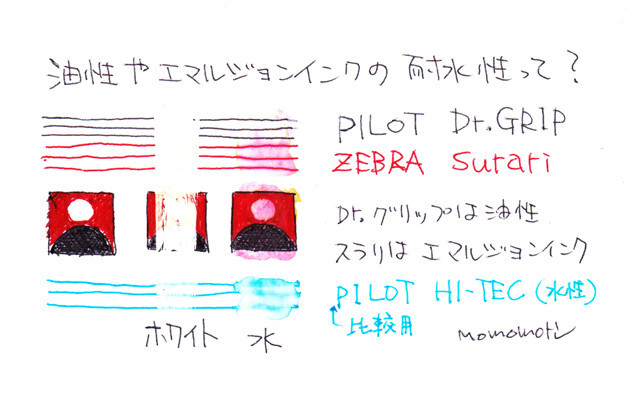 油性やエマルジョンインクの耐水性って?
PILOT Dr.GRIP
ZEBRA Surari
Dr.グリップは油性
スラリはエマルジョンインク
PILOT HI-TEC (水性)
比較用
ホワイト 水
momomori